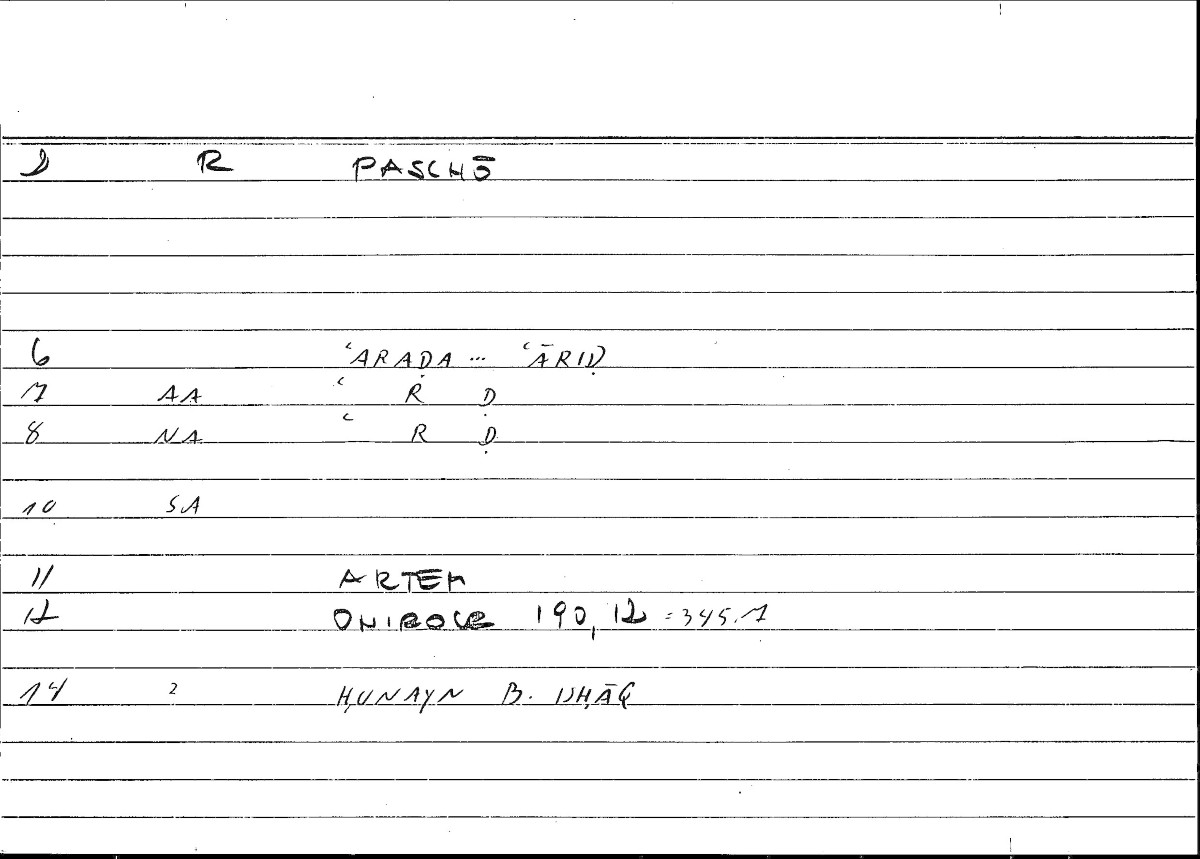 D R PASCHŌ
6 ʿARAḌA ... ʿĀRIḌ
7 AA ʿ R Ḍ
8 NA ʿ R Ḍ
10 SA
11 ARTEM
12 ONIROCR 190, 12 = 345.7
14 2 ḤUNAYN B. ISḤĀQ